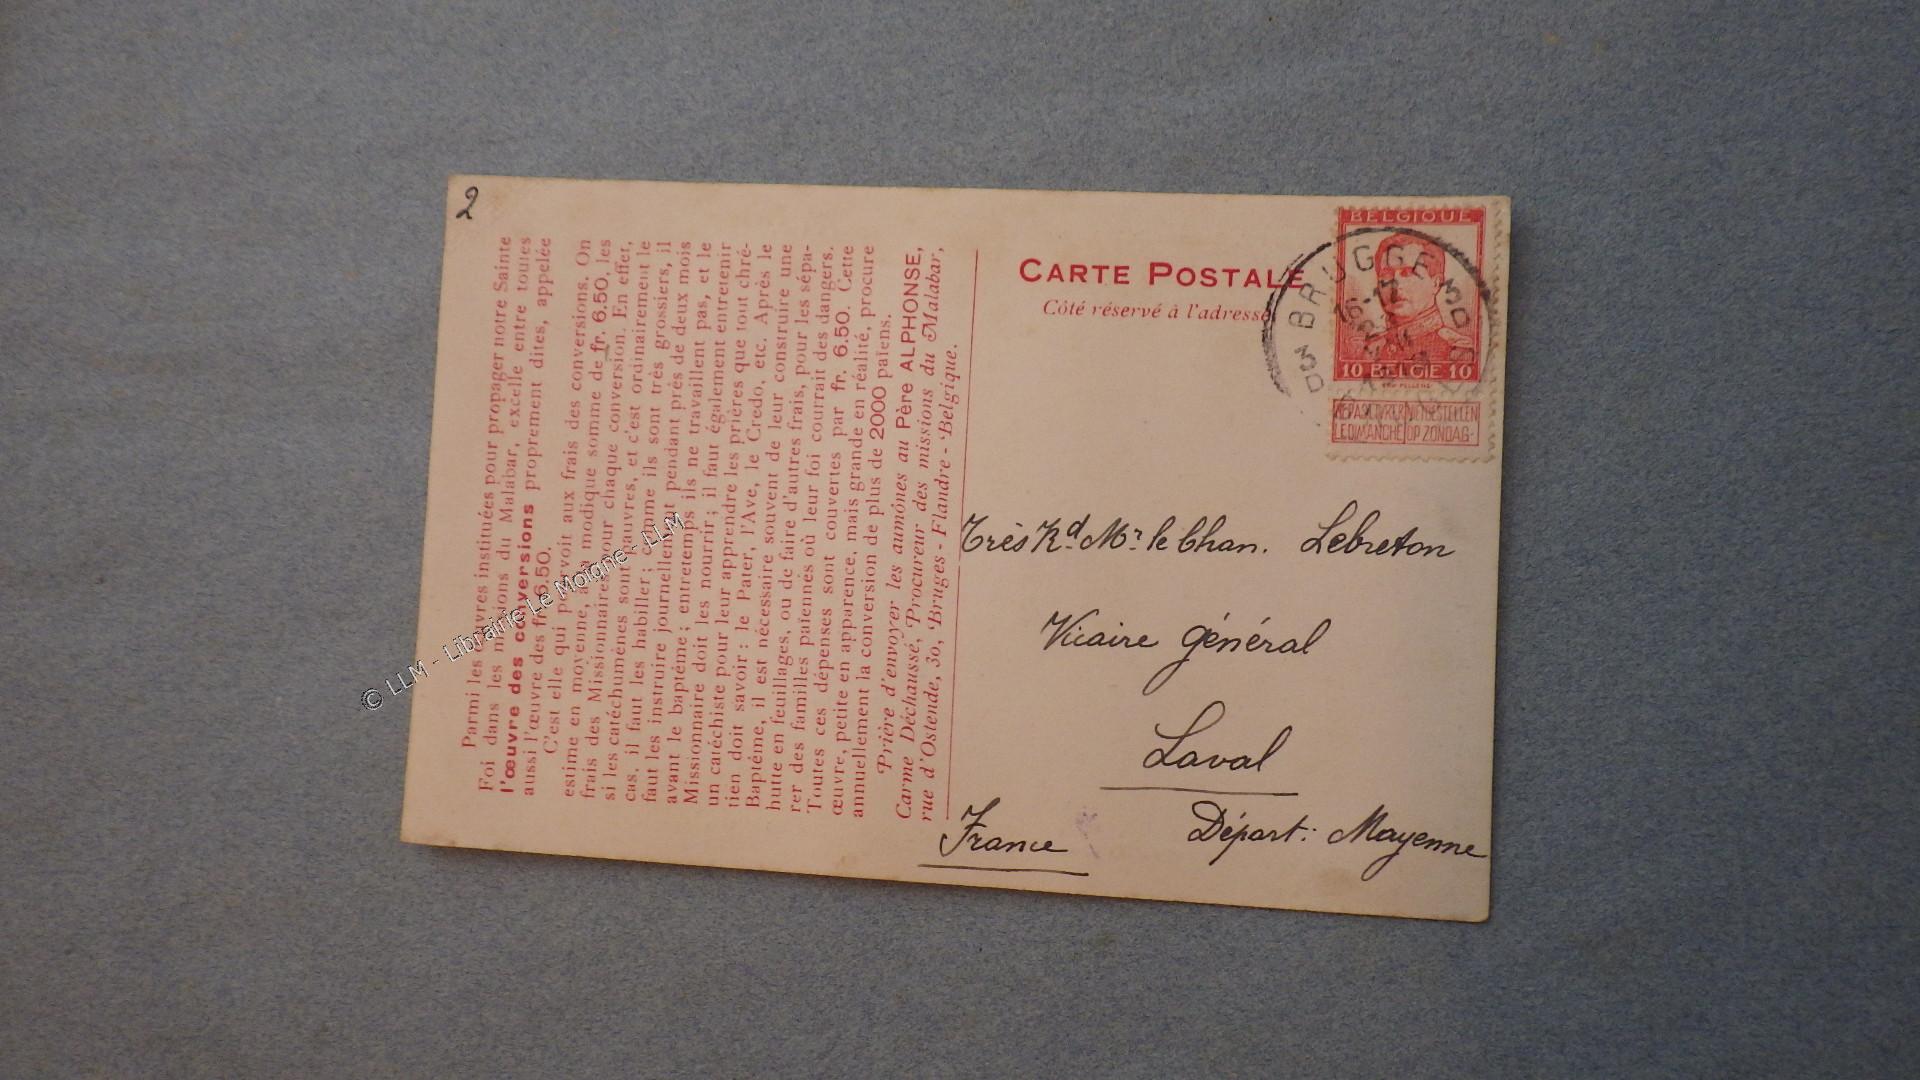 2
Parmi les œuvres instituées pour propager notre Sainte
Foi dans les missions du Malabar, excelle entre toutes
l'œuvre des conversions proprement dites, appelée
aussi l'œuvre des fr. 6.50.
C'est elle qui pourvoit aux frais des conversions. On
estime en moyenne, à la modique somme de fr. 6.50, les
frais des Missionnaires pour chaque conversion. En effet,
si les catéchumènes sont pauvres, et c'est ordinairement le
cas, il faut les habiller; comme ils sont très grossiers, il
faut les instruire journellement pendant près de deux mois
avant le baptême; entretemps ils ne travaillent pas, et le
Missionnaire doit les nourrir; il faut également entretenir
un catéchiste pour leur apprendre les prières que tout chré-
tien doit savoir: le Pater, l'Ave, le Credo, etc. Après le
Baptême, il est nécessaire souvent de leur construire une
hutte en feuillages, ou de faire d'autres frais, pour les sépa-
rer des familles païennes où leur foi courrait des dangers.
Toutes ces dépenses sont couvertes par fr. 6.50. Cette
œuvre, petite en apparence, mais grande en réalité, procure
annuellement la conversion de plus de 2000 païens.
Prière d'envoyer les aumônes au Père ALPHONSE,
Carme Déchaussé, Procureur des missions du Malabar,
rue d'Ostende, 30, Bruges - Flandre - Belgique.
CARTE POSTALE
Côté réservé à l'adresse
BELGIQUE
10 BELGIE 10
NE PAS LIVRER NIET BESTELLEN
LE DIMANCHE OP ZONDAG
BRUGGE 3
3
16-17
Très Rd. Mr le Chan. Lebreton
Vicaire général
Laval
Départ: Mayenne
France
© LLM - Librairie Le Moigne - LLM